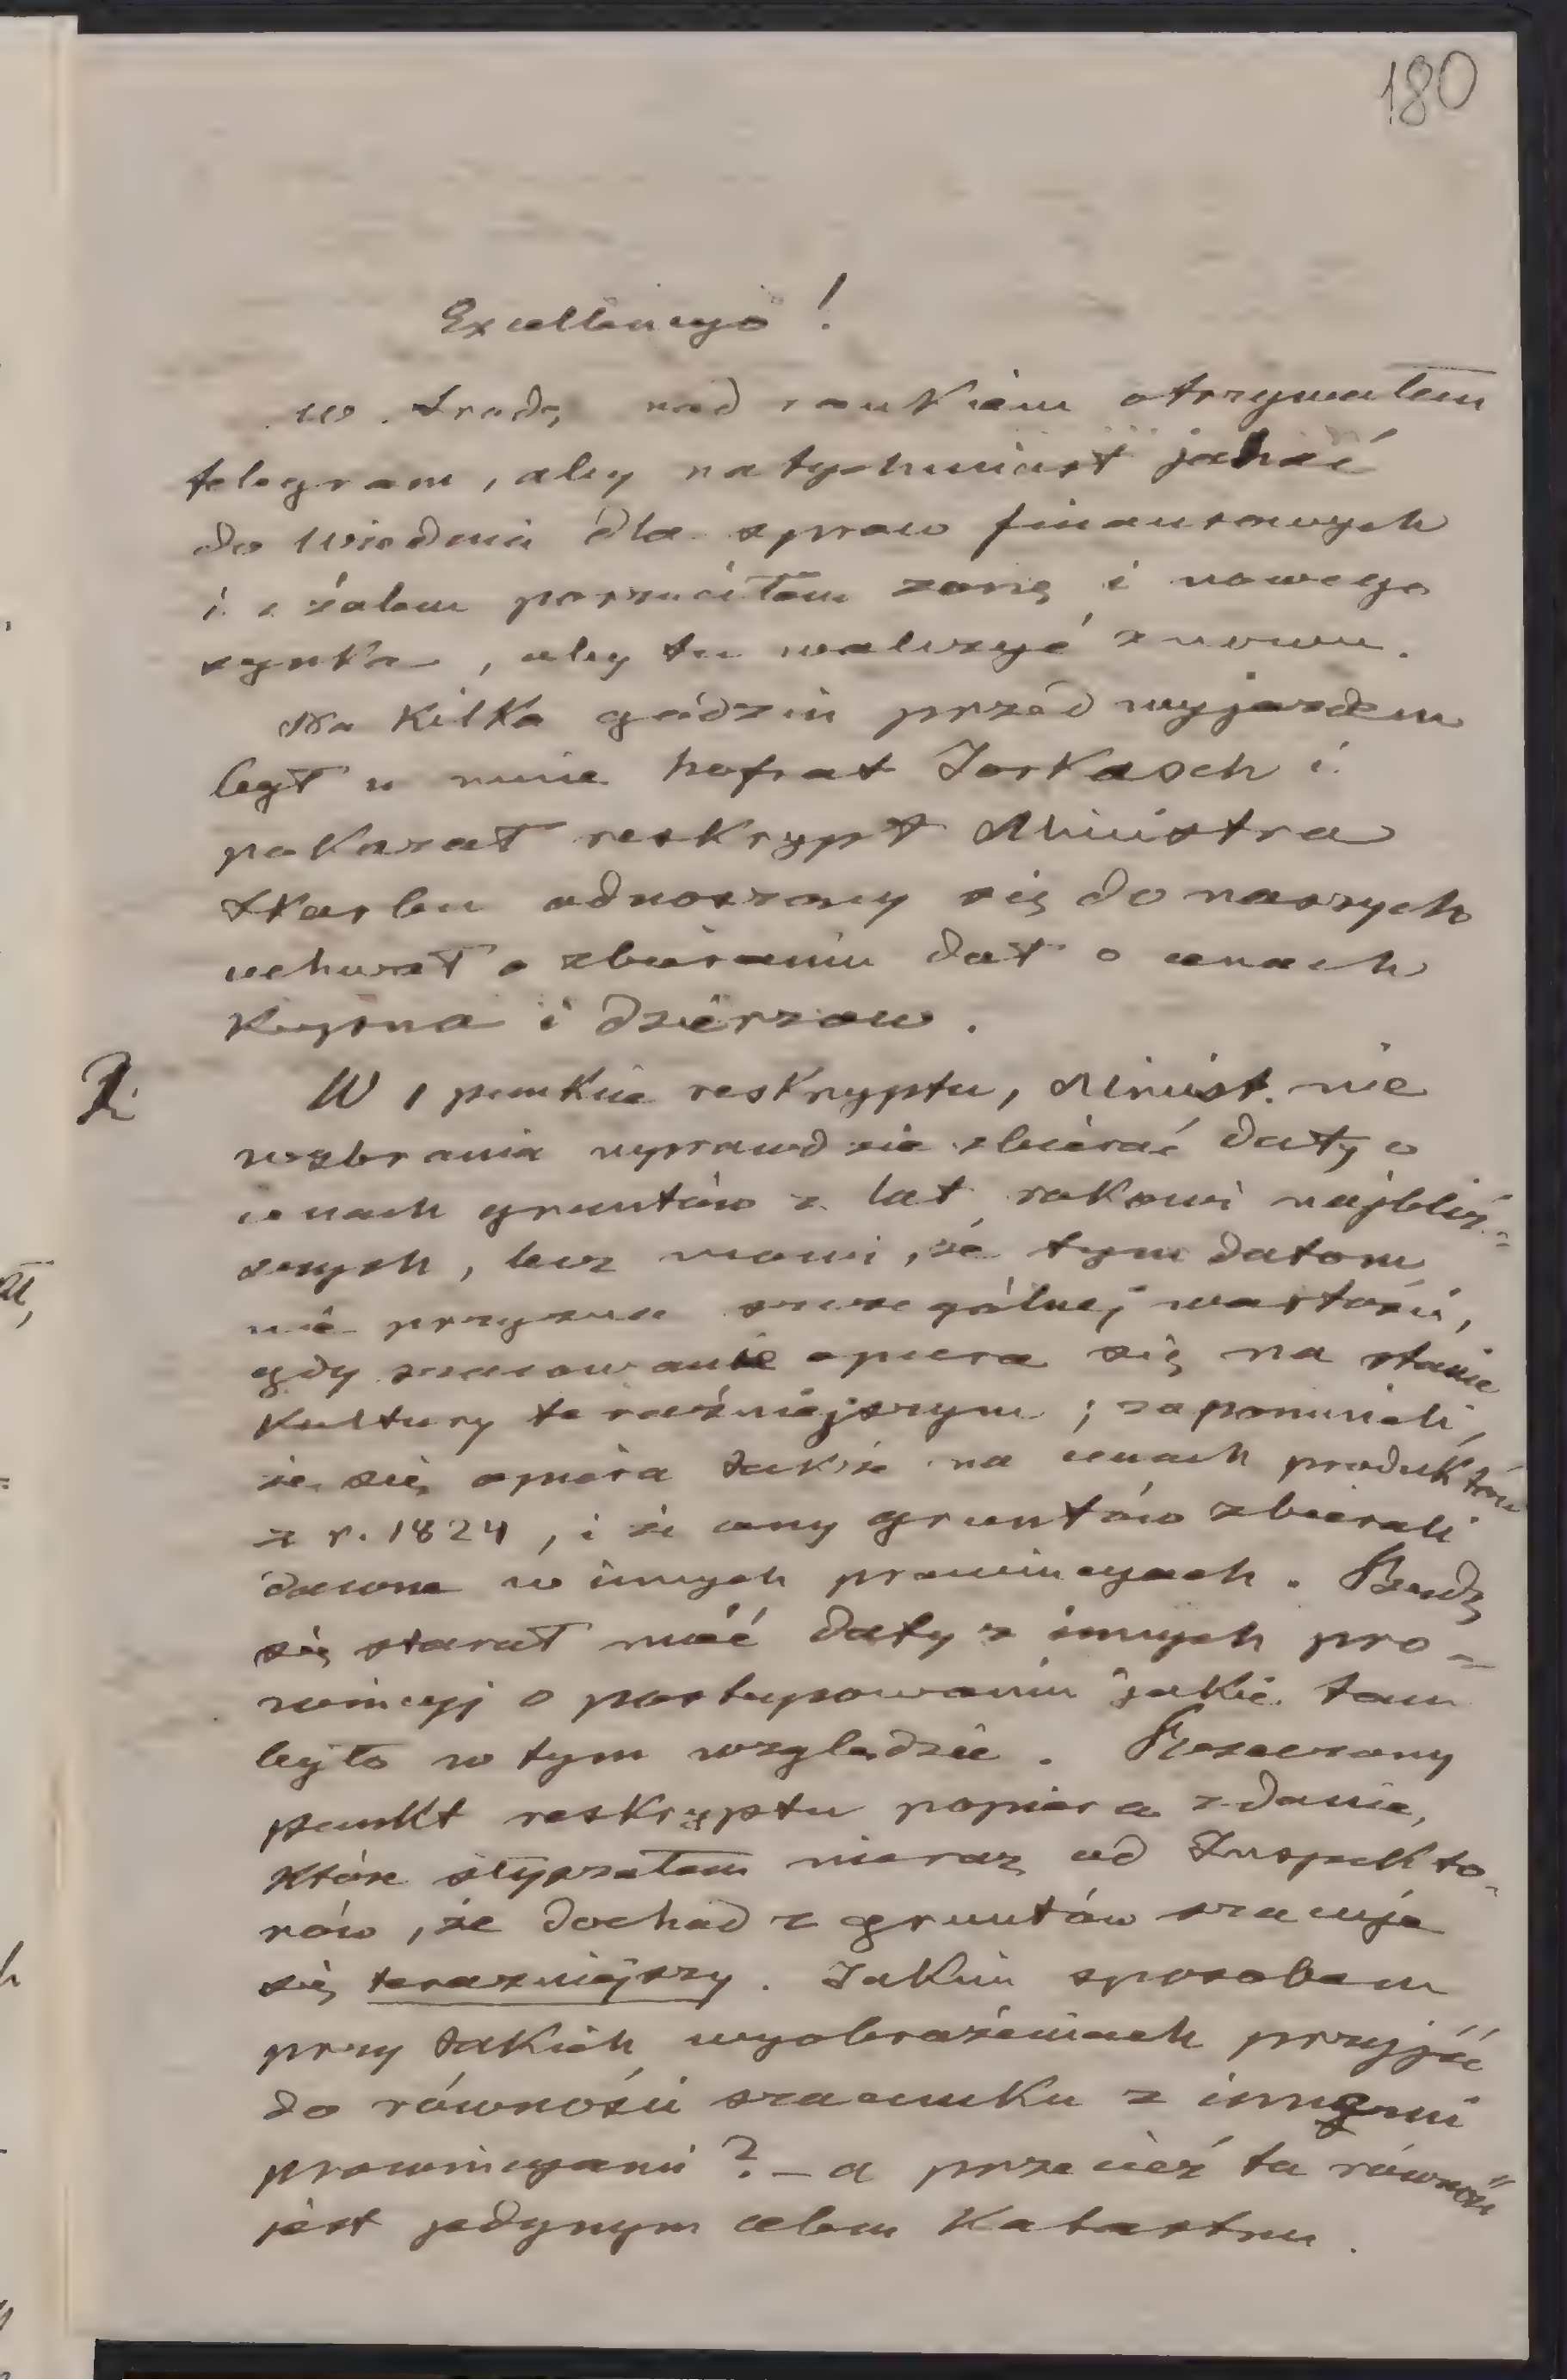 180
Excellencyo!
w Srodę nad rankiem otrzymałem
telegram, aby natychmiast jechać
do Wiednia dla spraw finansowych
i z żalem porzuciłem żonę i nowego
synka, aby tu walczyć znowu.
Na kilka godzin przed wyjazdem
był u mnie hofrat Jorkasch i
pokazał reskrypt Ministra
Skarbu odnoszony się do naszych
uchwał o zbieraniu dat o cenach
Kupna i dzierzaw.
W 1 punkcie reskryptu, Minist. nie
wzbrania wprawdzie zbierać daty o
cenach gruntów z lat rokowi najbliż-
szych, lecz mowi, że tym datom
nie przyzna szczególnej wartości,
gdy szacowanie opiera się na stanie
Kultury teraźniejszym; zapomnieli,
że się opiera także na cenach produktów
z r. 1824, i że ceny gruntów zbierali
dawno w innych prowincyach. Bendę
się starał mieć daty z innych pro-
wincyj o postupowaniu jakie tam
było w tym względzie. Rzeczony
punkt reskryptu popiera zdanie,
Które słyszałem nieraz od Inspekto-
rów, że dochod z gruntów szacuje
się terazniejszy. Jakim sposobem
przy takich wyobrażeniach przyjść
do równości szacunku z innymi
prowincyami? – a przecież ta równość
jest jedynym celem Katastru.